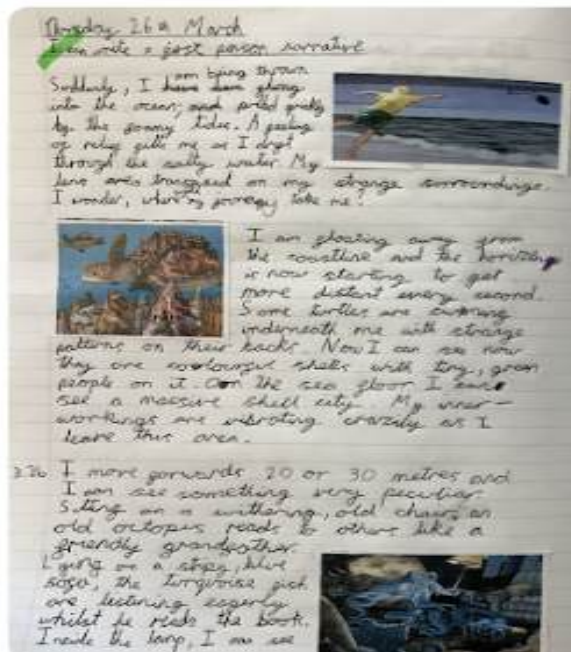 Thursday 26th March
I can write a first person narrative
Suddenly, I am being thrown
into the ocean, and pulled
by the foamy tides. A feeling
of relief fills me as I drift
through the salty water. My
lens are on my strange surroundings.
I wonder, where my journey take me.
I am floating away from
the coastline and the horizon
is now starting to get
more distant every second.
Some turtles are swimming
underneath me with strange
patterns on their backs. Now I can see now
they are colourful shells with tiny, green
people on it. On the sea floor I can
see a massive shell city. My inner-
workings are vibrating crazily as I
leave this area.
I move forwards 20 or 30 metres and
I can see something very peculiar.
Siting on a withering, old chair, an
old octopus reads to others like a
friendly grandfather.
Lying on a stripy, blue
sofa, the turquoise fish
are listening eagerly
whilst he reads the book.
Inside the lamp, I can see